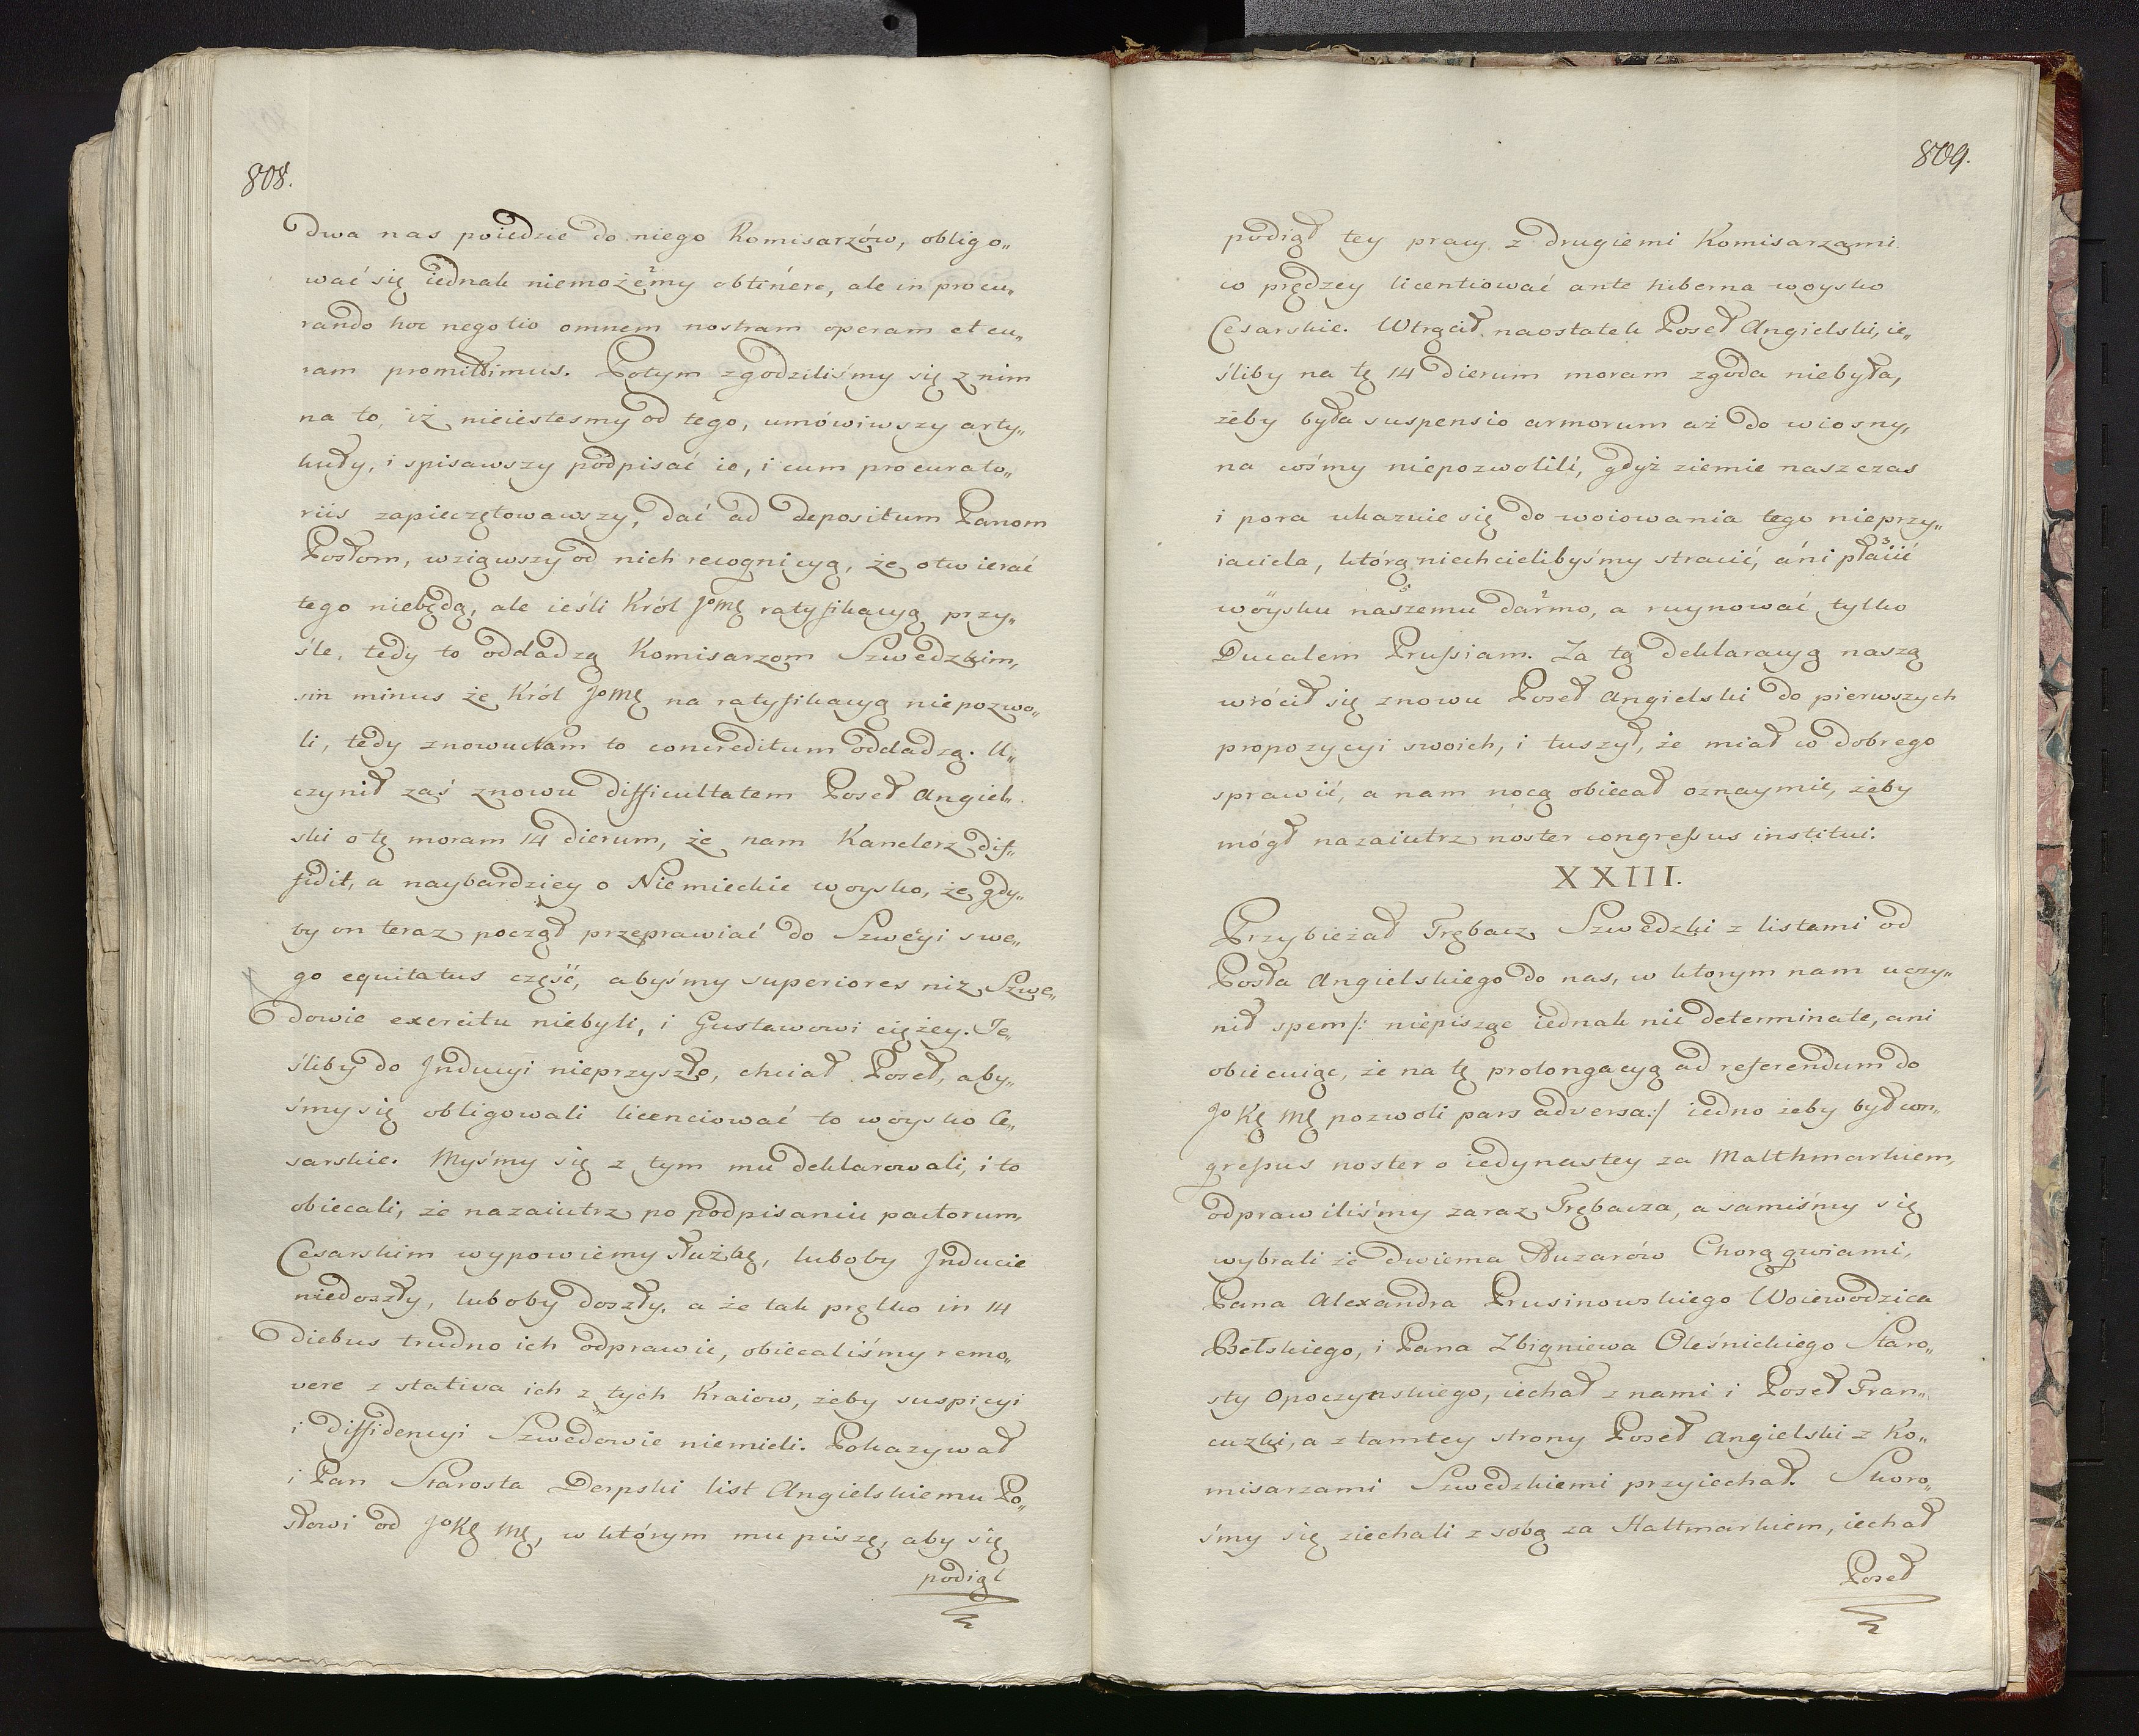 808.
dwa nas poiedzie do niego Komisarzów, obligo„
wać się iednak niemożemy obtinere, ale in procu„
rando hoc negotio omnem nostram operam et cu„
ram promittimus. Potym zgodziliśmy się z nim
na to, iż nieiestesmy od tego, umówiwszy arty„
kuły, i spisawszy podpisać ie, i cum procurato„
riis zapieczętowawszy, dać ad depositum Panom
Posłom, wziąwszy od nich recognicyą, że otwierać
tego niebędą, ale ieśli Król JoMę ratyfikacyą przy„
śle, tedy to oddadzą Komisarzom Szwedzkim,
sin minus że Król JoMę na ratyfikacyą niepozwo„
li, tedy znowu Nam to concreditum oddadzą. U„
czynił zaś znowu difficultatem Poseł Angiel„
ski o tę moram 14 dierum, że nam Kanclerz dif„
fidit, a naybardziey o Niemieckie woysko, że gdy„
by on teraz począł przeprawiać do Szweyi swe„
go equitatus część, abyśmy superiores niż Szwe„
dowie exercitu niebyli, i Gustawowi ciężey. Je„
śliby do Jnducyi nieprzyszło, chciał Poseł, aby„
śmy się obligowali licenciować to woysko Ce„
sarskie. Myśmy się z tym mu deklarowali, i to
obiecali, że nazaiutrz po podpisaniu pactorum,
Cesarskim wypowiemy służbę, luboby Jnducie
niedoszły, luboby doszły, a że tak prętko in 14
diebus trudno ich odprawić, obiecaliśmy remo„
vere z stativa ich z tych Kraiow, żeby suspicyi
i diffidencyi Szwedowie niemieli. Pokazywał
i Pan Starosta Derpski list Angielskiemu Po„
słowi od JoKę Mę, w którym mu piszę, aby się
podiął
809.
podiął tey pracy z drugiemi Komisarzami
co prędzey licentiować ante hiberna woysko
Cesarskie. Wtrącił naostatek Poseł Angielski, ie„
śliby na tę 14 dierum moram zgoda niebyła,
żeby była suspensio armorum aż do wiosny,
na cośmy niepozwolili, gdyż ziemie nasz czas
i pora ukazuie się do woiowania tego nieprzy„
iaciela, którą niechcielibyśmy stracić, ani płacić
woysku naszemu darmo, a ruynować tylko
Ducalem Prussiam. Za tą deklaracyą naszą
wrócił się znowu Poseł Angielski do pierwszych
propozycyi swoich, i tuszył, że miał co dobrego
sprawić, a nam nocą obiecał oznaymić, żeby
mógł nazaiutrz noster congressus institui.
XXIII.
Przybieżał Trębacz Szwedzki z listami od
Posła Angielskiego do nas, w ktorym nam uczy„
nił spem /: niepisząc iednak nic determinate, ani
obiecuiąc, że na tę prolongacyą ad referendum do
Jo Kę Mę pozwoli pars adversa:/ iedno żeby był con„
gressus noster o iedynastey za Malthmarkiem,
odprawiliśmy zaraz Trębacza, a samiśmy się
wybrali ze dwiema Huzarów Chorągwiami,
Pana Alexandra Prusinowskiego Woiewodzica
Bełskiego, i Pana Zbigniewa Oleśnickiego Staro„
sty Opoczynskiego, iechał z nami i Poseł Fran„
cuzki, a z tamtey strony Poseł Angielski z Ko„
misarzami Szwedzkiemi przyiechał. Skoro„
śmy się ziechali z sobą za Haltmarkiem, iechał
Poseł